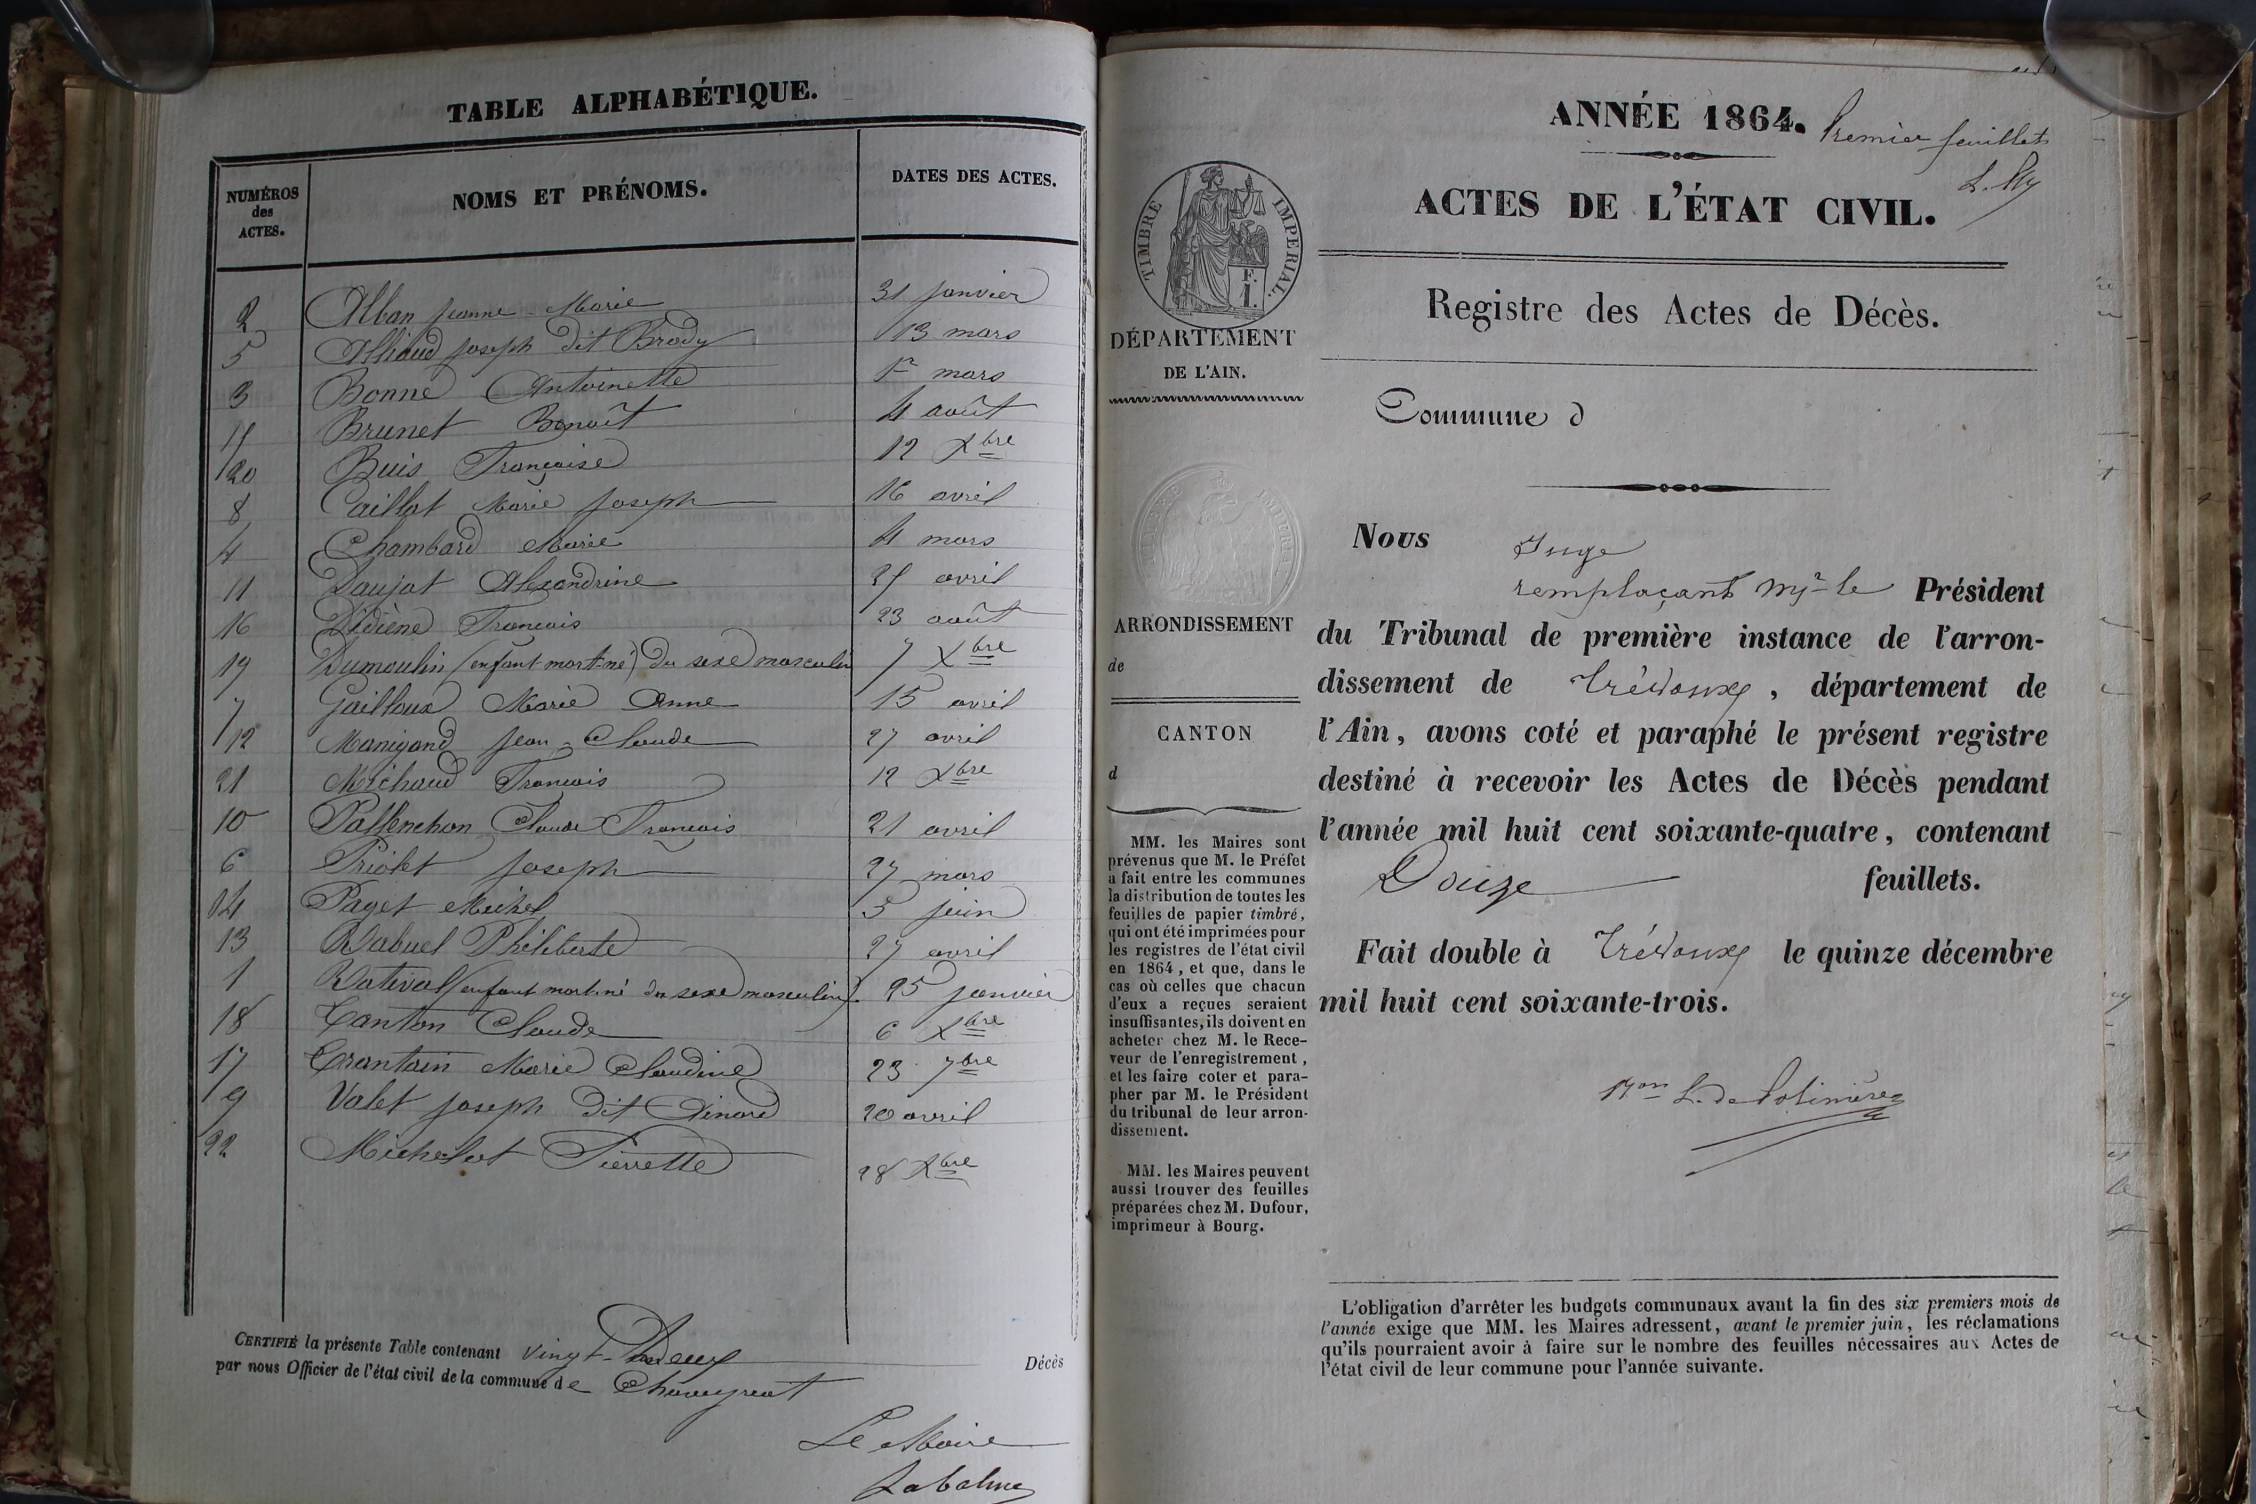 TABLE ALPHABÉTIQUE.
NUMÉROS des ACTES. NOMS ET PRÉNOMS. DATES DES ACTES.
2 Alban Jeanne-Marie 31 janvier
5 Alliaud Joseph dit Brody 13 mars
3 Bonne Antoinette 1er mars
15 Brunet Benoît 4 août
20 Buis Françoise 12 Xbre
8 Caillat Marie Joseph 16 avril
4 Chambard Marie 4 mars
11 Daujat Alexandrine 25 avril
16 Didiène François 23 août
19 Dumoulin (enfant mort-né) du sexe masculin 7 Xbre
7 Gailloux Marie Anne 15 avril
12 Manigand Jean-Claude 27 avril
21 Michaud François 12 Xbre
10 Claude François 21 avril
6 Priolet Joseph 27 mars
14 Paget Michel 5 juin
13 Rabuel Philiberte 27 avril
1 Rativat (enfant mort-né du sexe masculin) 25 janvier
18 Tanton Claude 6 Xbre
17 Trantain Marie Claudine 23 7bre
9 Valet Joseph dit 20 avril
22 Michelat Pierrette 28 Xbre
CERTIFIÉ la présente Table contenant vingt-Deux Décès
par nous Officier de l'état civil de la commune de Chaneyriat
Le Maire
Labalme
ANNÉE 1864. Premier feuillet
ACTES DE L'ÉTAT CIVIL.
TIMBRE IMPERIAL.
Registre des Actes de Décès.
DÉPARTEMENT
DE L'AIN.
Commune d
ARRONDISSEMENT
de
CANTON
d
MM. les Maires sont
prévenus que M. le Préfet
a fait entre les communes
la distribution de toutes les
feuilles de papier timbré,
qui ont été imprimées pour
les registres de l'état civil
en 1864, et que, dans le
cas où celles que chacun
d'eux a reçues seraient
insuffisantes, ils doivent en
acheter chez M. le Rece-
veur de l'enregistrement,
et les faire coter et para-
pher par M. le Président
du tribunal de leur arron-
dissement.
MM. les Maires peuvent
aussi trouver des feuilles
préparées chez M. Dufour,
imprimeur à Bourg.
Nous Juge
remplaçant Mr le Président
du Tribunal de première instance de l'arron-
dissement de Trévoux, département de
l'Ain, avons coté et paraphé le présent registre
destiné à recevoir les Actes de Décès pendant
l'année mil huit cent soixante-quatre, contenant
Douze feuillets.
Fait double à Trévoux le quinze décembre
mil huit cent soixante-trois.
L. de Polinière
L'obligation d'arrêter les budgets communaux avant la fin des six premiers mois de
l'année exige que MM. les Maires adressent, avant le premier juin, les réclamations
qu'ils pourraient avoir à faire sur le nombre des feuilles nécessaires aux Actes de
l'état civil de leur commune pour l'année suivante.